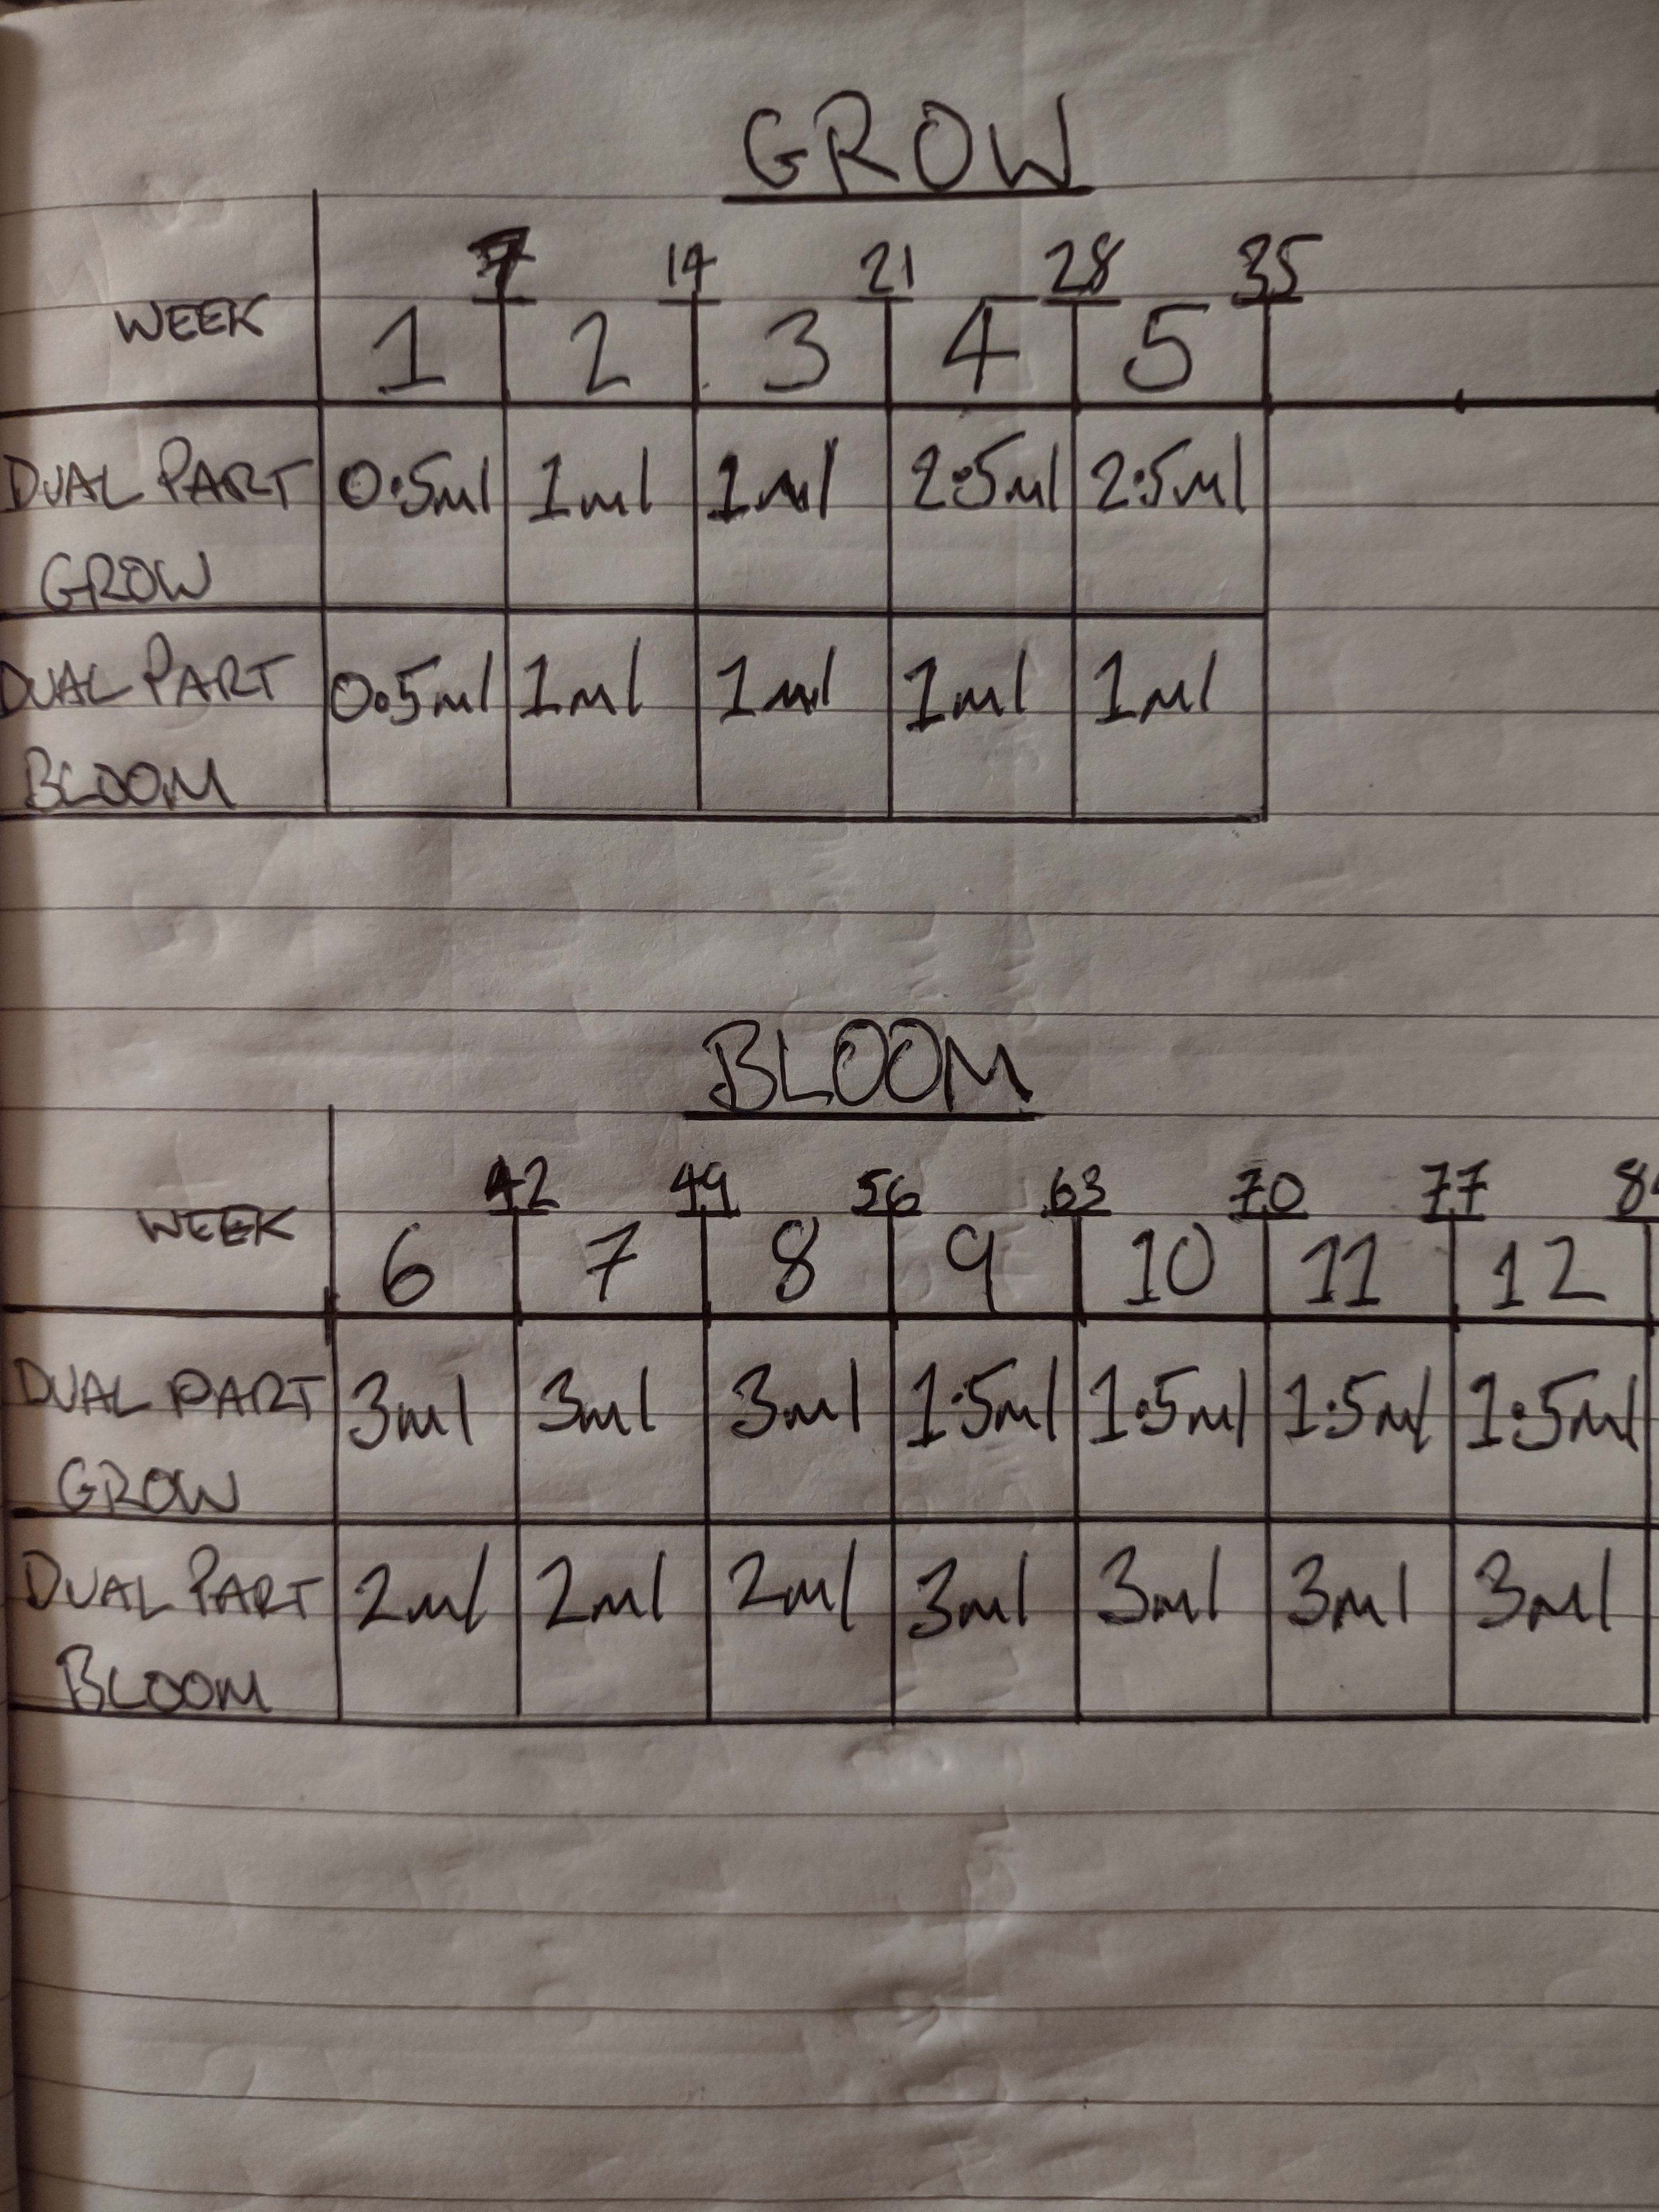 GROW
7 14 21 28 35
WEEK 1 2 3 4 5
DUAL PART 0.5ml 1ml 1ml 2.5ml 2.5ml
GROW
DUAL PART 0.5ml 1ml 1ml 1ml 1ml
BLOOM
BLOOM
42 49 56 63 70 77
WEEK 6 7 8 9 10 11 12
DUAL PART 3ml 3ml 3ml 1.5ml 1.5ml 1.5ml 1.5ml
GROW
DUAL PART 2ml 2ml 2ml 3ml 3ml 3ml 3ml
BLOOM